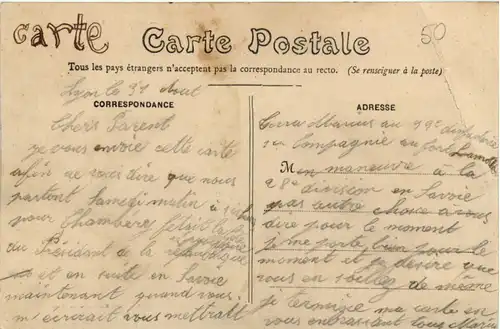 carte
Carte Postale
50
Tous les pays étrangers n'acceptent pas la correspondance au recto. (Se renseigner à la poste)
Lyon le 31 Aout
CORRESPONDANCE
Chers Parent
je vous envoie cette carte
afin de vous dire que nous
partont samedi matin à
pour Chambéry
du Président de la république
et en suite en Savoie
maintenant quand vous
m'ecrirait vous mettrait
ADRESSE
Marius au 99e
Compagnie au fort Lamothe
M en maneuvre à la
28e division en Savoie
pas autre chose à vous
dire pour le moment
je me porte bien pour le
moment et je désire que
vous en de meme
je termine ma carte en
vous embrassant tous